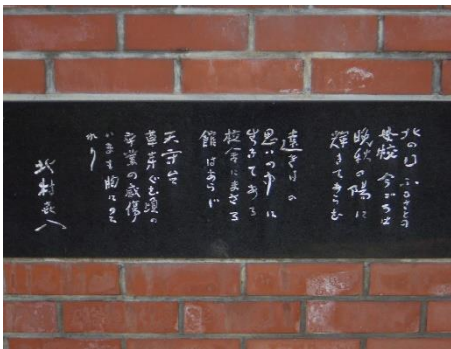 北の国 ふるさとの
母校 今ごろは
晩秋の陽に
輝きてあらむ
遠き日の
思いの中に
生きてある
校舎にまさる
館はあらじ
天守台
草芽ぐむ頃の
卒業の感傷
いまも胸にのこ
れり
北村喜八